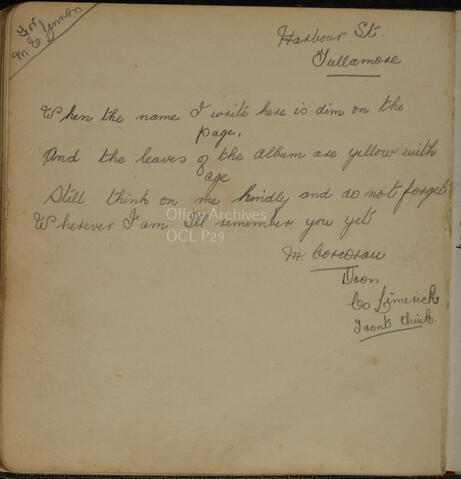 For
M. E. Lennon
Harbour St.
Tullamore
When the name I write here is dim on the
page,
And the leaves of the album are yellow with
age
Still think on me kindly and do not forget
Wherever I am I'll remember you yet
M. Corcoran
Doon
Co Limerick
I don't think.
Offaly Archives
OCL P29